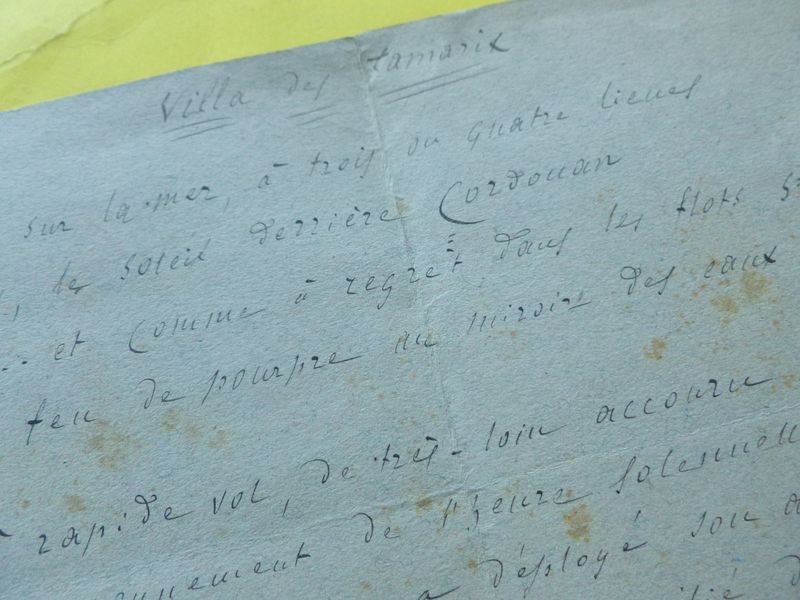 Villa des tamarix
sur la mer, à trois ou quatre lieues
, le soleil derrière Cordouan
.. et comme à regret dans les flots s
feu de pourpre au miroir des eaux
rapide vol, de très-loin accouru
onnement de l'heure solennell
a déployé son a